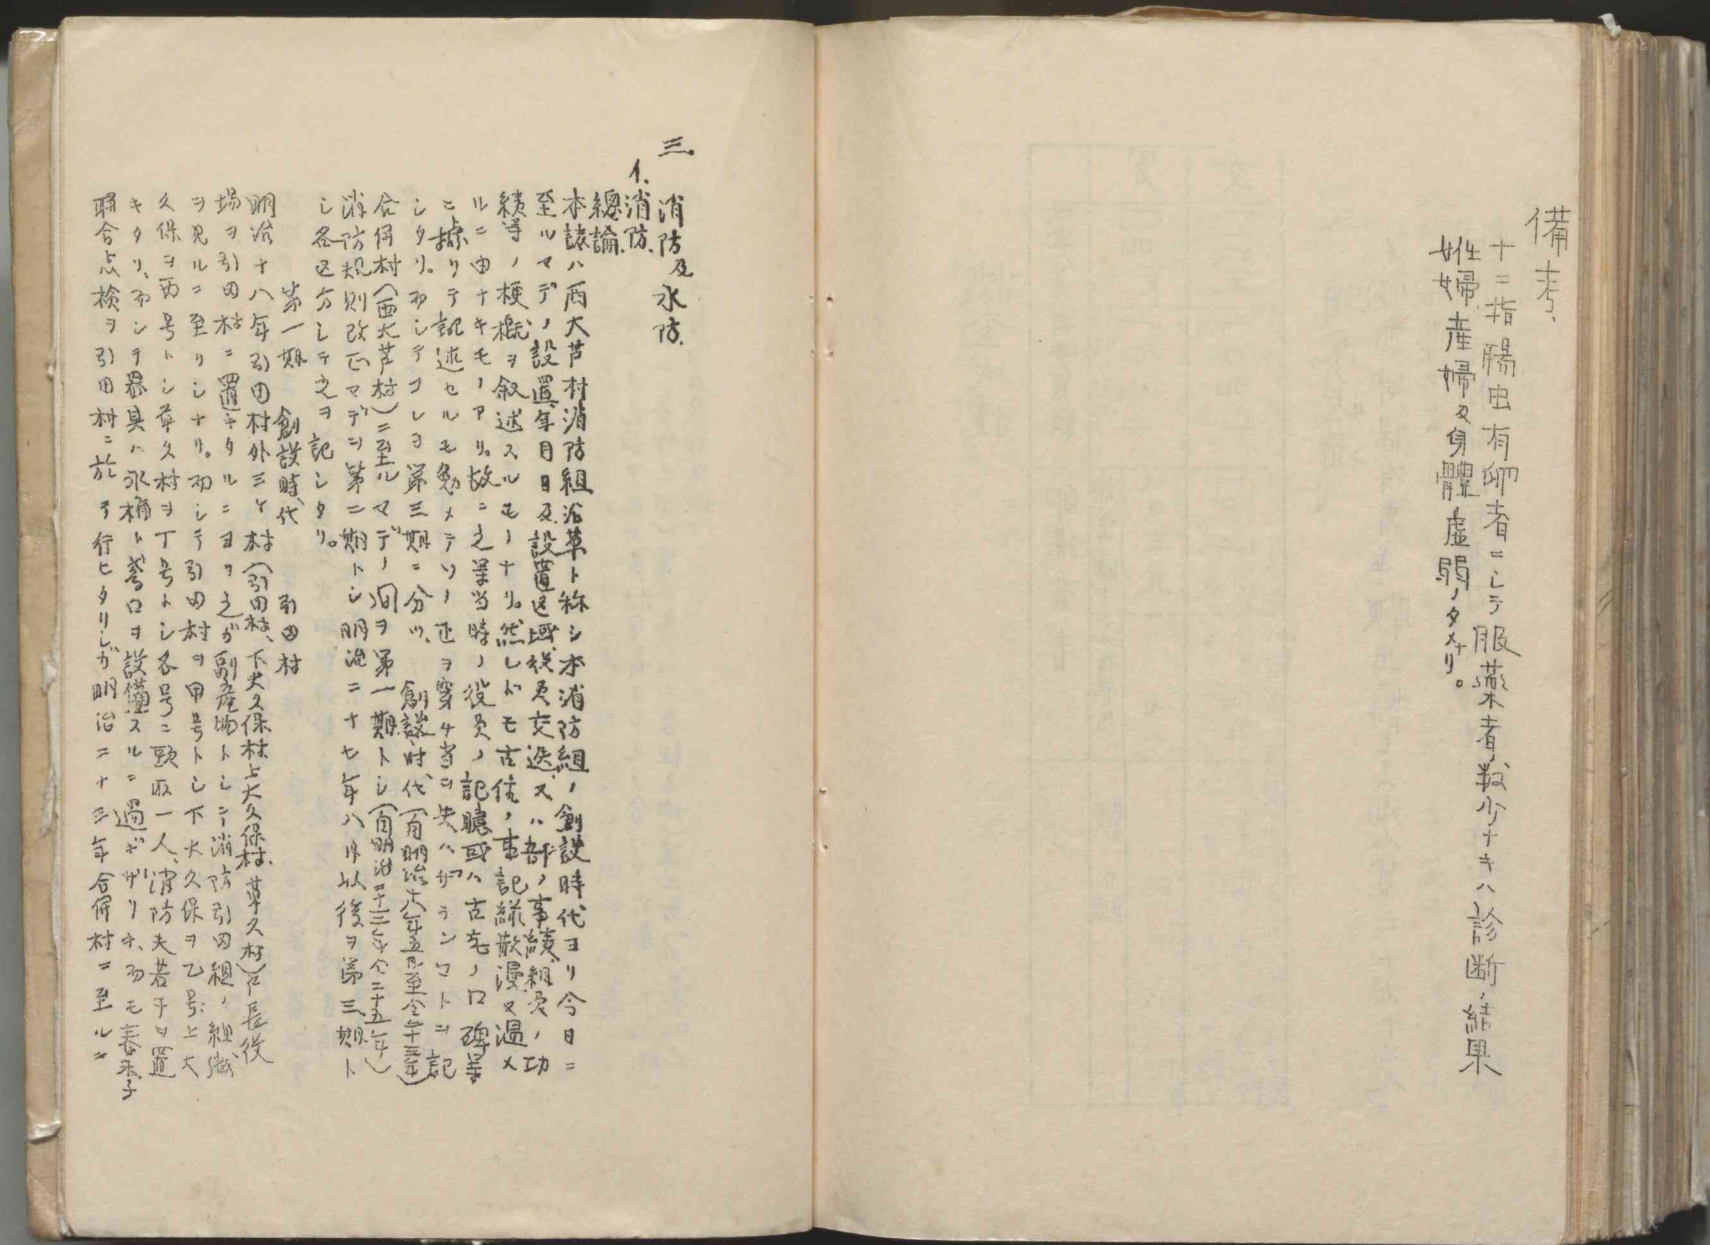 備考、
十二指腸虫有卵者ニシテ服薬者ノ数少ナキハ診断ノ結果
妊婦、産婦及身體虚弱ノタメナリ。
三。消防及水防。
イ、消防、
總論、
本誌ハ西大芦村消防組沿革ト称シ本消防組ノ創設時代ヨリ今日ニ
至ルマデノ設置年月日及設置区域、役員交迭、又ハ部ノ事績、組合ノ功
績等ノ梗概ヲ叙述スルモノナリ。然レドモ古住ノ事記録散漫又湮メ
ルニ由ナキモノアリ。故ニ之軍当時ノ役員ノ記臆或ハ古老ノ口碑等
ニ據リテ記述セルモ勉メテソノ正ヲ穿チ当ヲ失ハザランコトヲ記
シタリ。而シテコレヲ第三期ニ分ツ、創設時代(自明治十八年五月至仝年十二年)
合併村(西大芦村)ニ至ルマデノ間ヲ第一期トシ(自明治二十三年仝二十五年)
消防規則改正マデヲ第二期トシ明治二十七年八月以後ヲ第三期ト
シ各区分シテ之ヲ記シタリ。
第一期 創設時代 引田村
明治十八年引田村外三ケ村(引田村、下大久保村、上大久保村、草久村)戸長役
場ヲ引田村ニ置キタルニヨリ之ガ副産物トシテ消防引田組ノ組織
ヲ見ルニ至リシナリ。而シテ引田村ヲ甲号トシ下大久保ヲ乙号上大
久保ヲ丙号トシ草久村ヲ丁号トシ各号ニ頭取一人、消防夫若干ヲ置
キタリ、而シテ器具ハ水桶ト鳶口ヲ設備スルニ過ギザリキ、而モ春季
聯合点検ヲ引田村ニ於テ行ヒタリシガ明治二十三年合併村ニ至ルニ